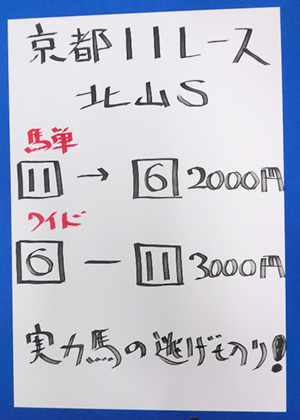 京都11レース
北山S
馬単
11 → 6 2000円
ワイド
6 ー 11 3000円
実力馬の逃げもの!